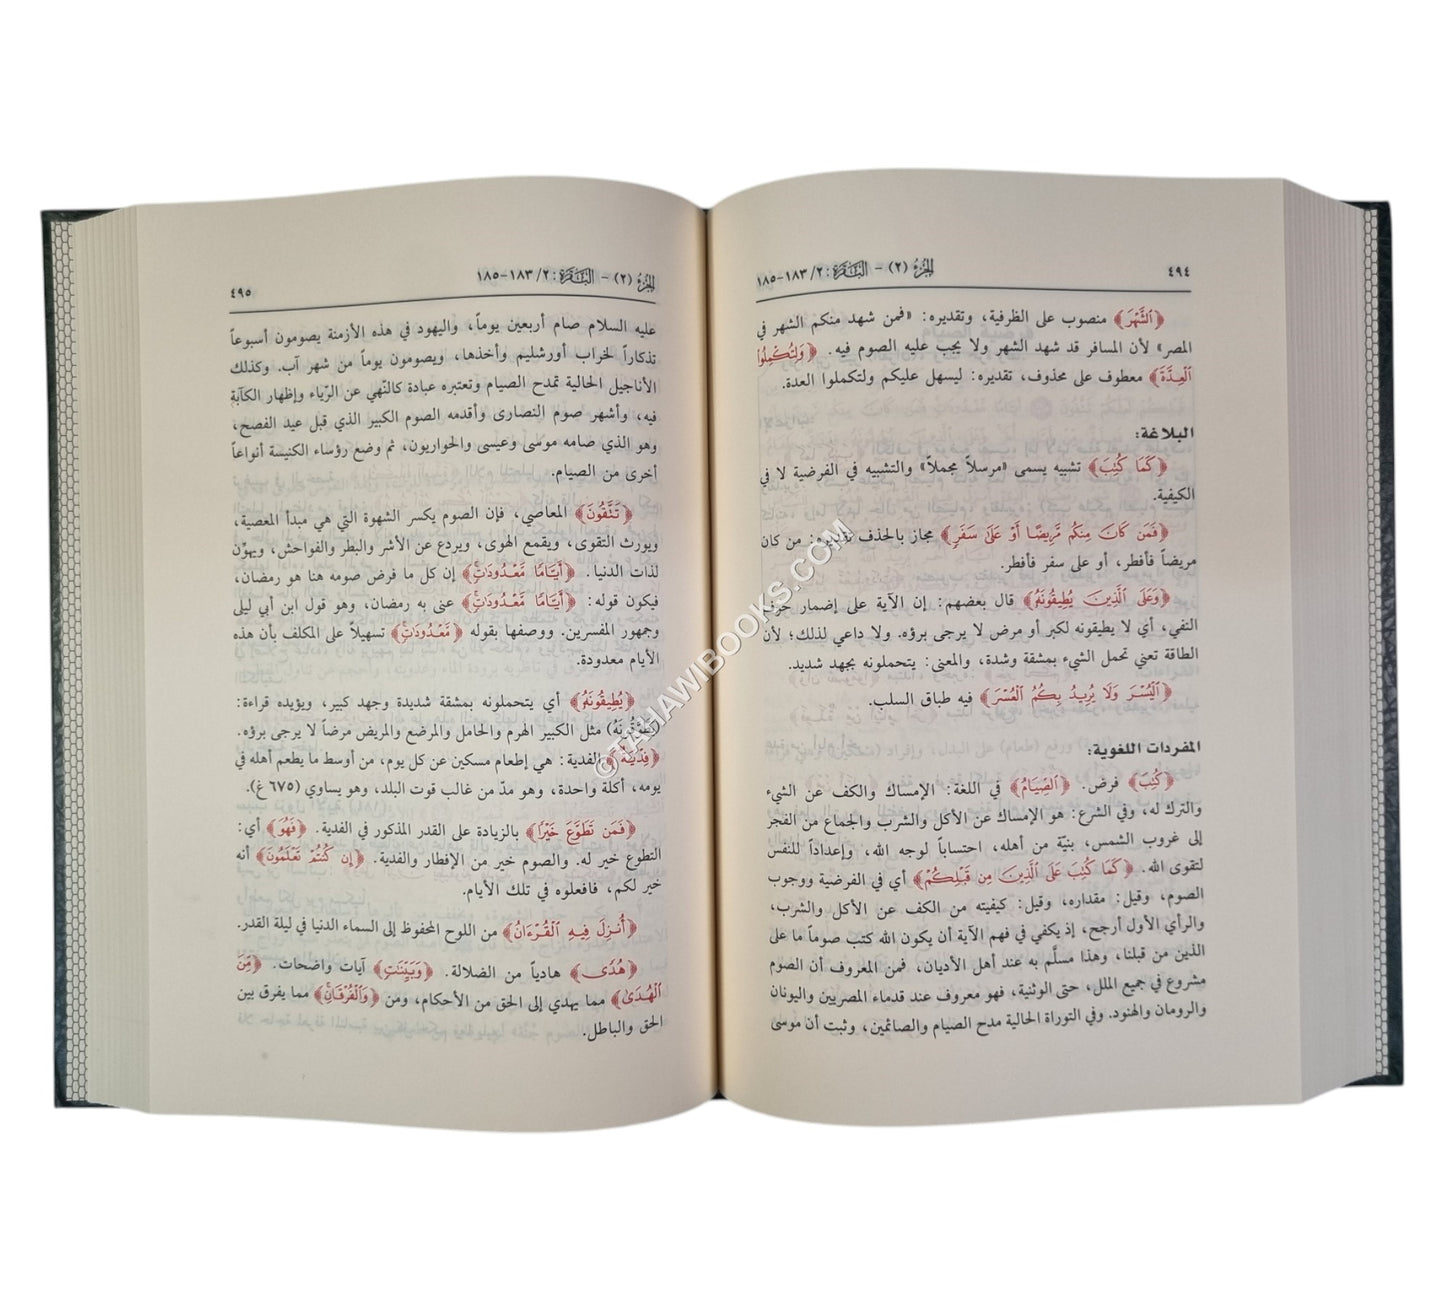 ٤٩٤ الجزء (٢) - البقرة: ٢/ ١٨٣-١٨٥
﴿الشَّهْرَ﴾ منصوب على الظرفية، وتقديره: «فمن شهد منكم الشهر في
المصر» لأن المسافر قد شهد الشهر ولا يجب عليه الصوم فيه. ﴿وَلِتُكْمِلُوا
الْعِدَّةَ﴾ معطوف على محذوف، تقديره: ليسهل عليكم ولتكملوا العدة.
البلاغة:
﴿كَمَا كُتِبَ﴾ تشبيه يسمى «مرسلاً مجملاً» والتشبيه في الفرضية لا في
الكيفية.
﴿فَمَن كَانَ مِنكُم مَّرِيضًا أَوْ عَلَىٰ سَفَرٍ﴾ مجاز بالحذف تقديره: من كان
مريضاً فأفطر، أو على سفر فأفطر.
﴿وَعَلَى الَّذِينَ يُطِيقُونَهُ﴾ قال بعضهم: إن الآية على إضمار حرف
النفي، أي لا يطيقونه لكبر أو مرض لا يرجى برؤه. ولا داعي لذلك؛ لأن
الطاقة تعني تحمل الشيء بمشقة وشدة، والمعنى: يتحملونه بجهد شديد.
﴿الْيُسْرَ وَلَا يُرِيدُ بِكُمُ الْعُسْرَ﴾ فيه طباق السلب.
المفردات اللغوية:
﴿كُتِبَ﴾ فرض. ﴿الصِّيَامُ﴾ في اللغة: الإمساك والكف عن الشيء
والترك له، وفي الشرع: هو الإمساك عن الأكل والشرب والجماع من الفجر
إلى غروب الشمس، بنيّة من أهله، احتساباً لوجه الله، وإعداداً للنفس
لتقوى الله. ﴿كَمَا كُتِبَ عَلَى الَّذِينَ مِن قَبْلِكُمْ﴾ أي في الفرضية ووجوب
الصوم، وقيل: مقداره، وقيل: كيفيته من الكف عن الأكل والشرب،
والرأي الأول أرجح، إذ يكفي في فهم الآية أن يكون الله كتب صوماً ما على
الذين من قبلنا، وهذا مسلَّم به عند أهل الأديان، فمن المعروف أن الصوم
مشروع في جميع الملل، حتى الوثنية، فهو معروف عند قدماء المصريين واليونان
والرومان والهنود. وفي التوراة الحالية مدح الصيام والصائمين، وثبت أن موسى
الجزء (٢) - البقرة: ٢/ ١٨٣-١٨٥ ٤٩٥
عليه السلام صام أربعين يوماً، واليهود في هذه الأزمنة يصومون أسبوعاً
تذكاراً لخراب أورشليم وأخذها، ويصومون يوماً من شهر آب. وكذلك
الأناجيل الحالية تمدح الصيام وتعتبره عبادة كالنّهي عن الرّياء وإظهار الكآبة
فيه، وأشهر صوم النصارى وأقدمه الصوم الكبير الذي قبل عيد الفصح،
وهو الذي صامه موسى وعيسى والحواريون، ثم وضع رؤساء الكنيسة أنواعاً
أخرى من الصيام.
﴿تَتَّقُونَ﴾ المعاصي، فإن الصوم يكسر الشهوة التي هي مبدأ المعصية،
ويورث التقوى، ويقمع الهوى، ويردع عن الأشر والبطر والفواحش، ويهوِّن
لذات الدنيا. ﴿أَيَّامًا مَّعْدُودَاتٍ﴾ إن كل ما فرض صومه هنا هو رمضان،
فيكون قوله: ﴿أَيَّامًا مَّعْدُودَاتٍ﴾ عنى به رمضان، وهو قول ابن أبي ليلى
وجمهور المفسرين. ووصفها بقوله ﴿مَّعْدُودَاتٍ﴾ تسهيلاً على المكلف بأن هذه
الأيام معدودة.
﴿يُطِيقُونَهُ﴾ أي يتحملونه بمشقة شديدة وجهد كبير، ويؤيده قراءة:
(يُطَوَّقُونَهُ) مثل الكبير الهرم والحامل والمرضع والمريض مرضاً لا يرجى برؤه.
﴿فِدْيَةٌ﴾ الفدية: هي إطعام مسكين عن كل يوم، من أوسط ما يطعم أهله في
يومه، أكلة واحدة، وهو مدّ من غالب قوت البلد، وهو يساوي (٦٧٥ غ).
﴿فَمَن تَطَوَّعَ خَيْرًا﴾ بالزيادة على القدر المذكور في الفدية. ﴿فَهُوَ﴾ أي:
التطوع خير له. والصوم خير من الإفطار والفدية. ﴿إِن كُنتُمْ تَعْلَمُونَ﴾ أنه
خير لكم، فافعلوه في تلك الأيام.
﴿أُنزِلَ فِيهِ الْقُرْءَانُ﴾ من اللوح المحفوظ إلى السماء الدنيا في ليلة القدر.
﴿هُدًى﴾ هادياً من الضلالة. ﴿وَبَيِّنَاتٍ﴾ آيات واضحات. ﴿مِّنَ
الْهُدَىٰ﴾ مما يهدي إلى الحق من الأحكام، ومن ﴿وَالْفُرْقَانِ﴾ مما يفرق بين
الحق والباطل.
©TAHAWIBOOKS.COM